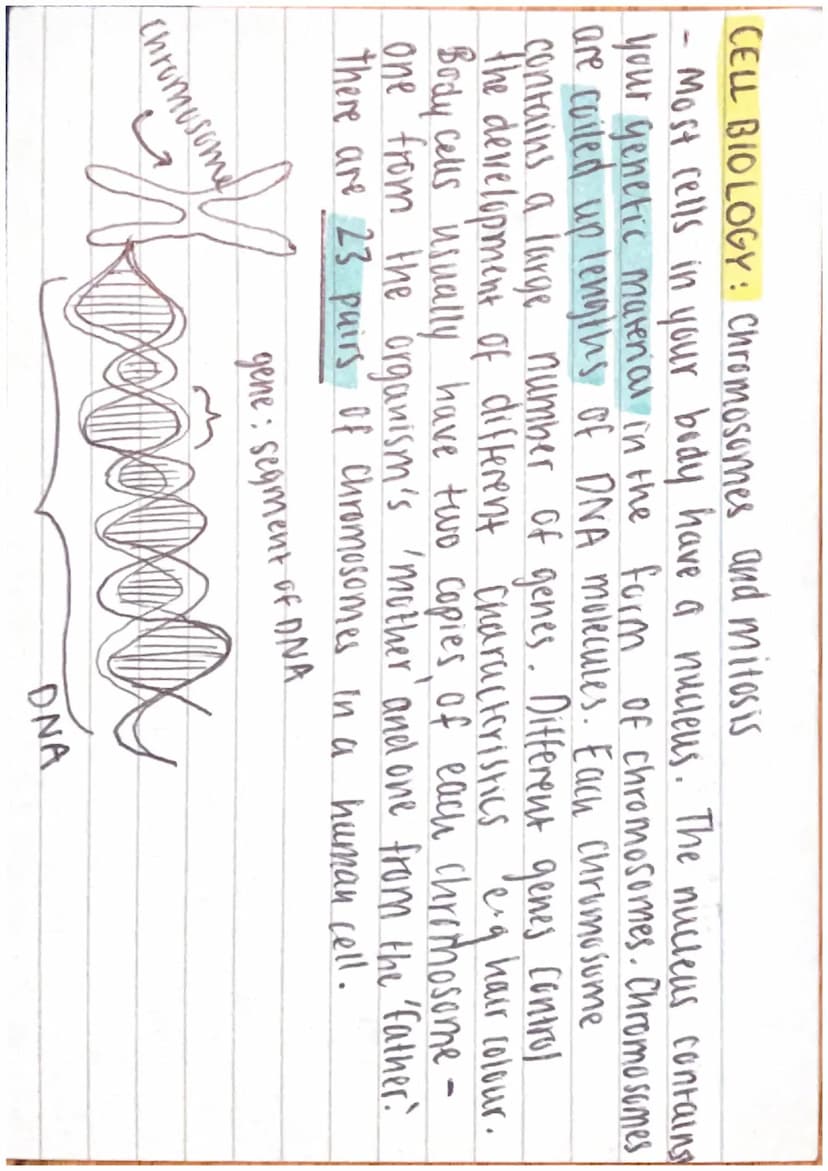 CELL BIOLOGY: Chromosomes and mitosis
- Most cells in your body have a nucleus. The nucleus contains
your genetic material in the form of chromosomes. Chromosomes
are coiled up lengths of DNA molecules. Each chromosome
contains a large number of genes. Different genes control
the development of different characteristics e.g hair colour.
Body cells usually have two copies of each chromosome -
one from the organism's 'mother' and one from the 'father'.
There are 23 pairs of chromosomes in a human cell.
chromosome
gene: segment of DNA
DNA